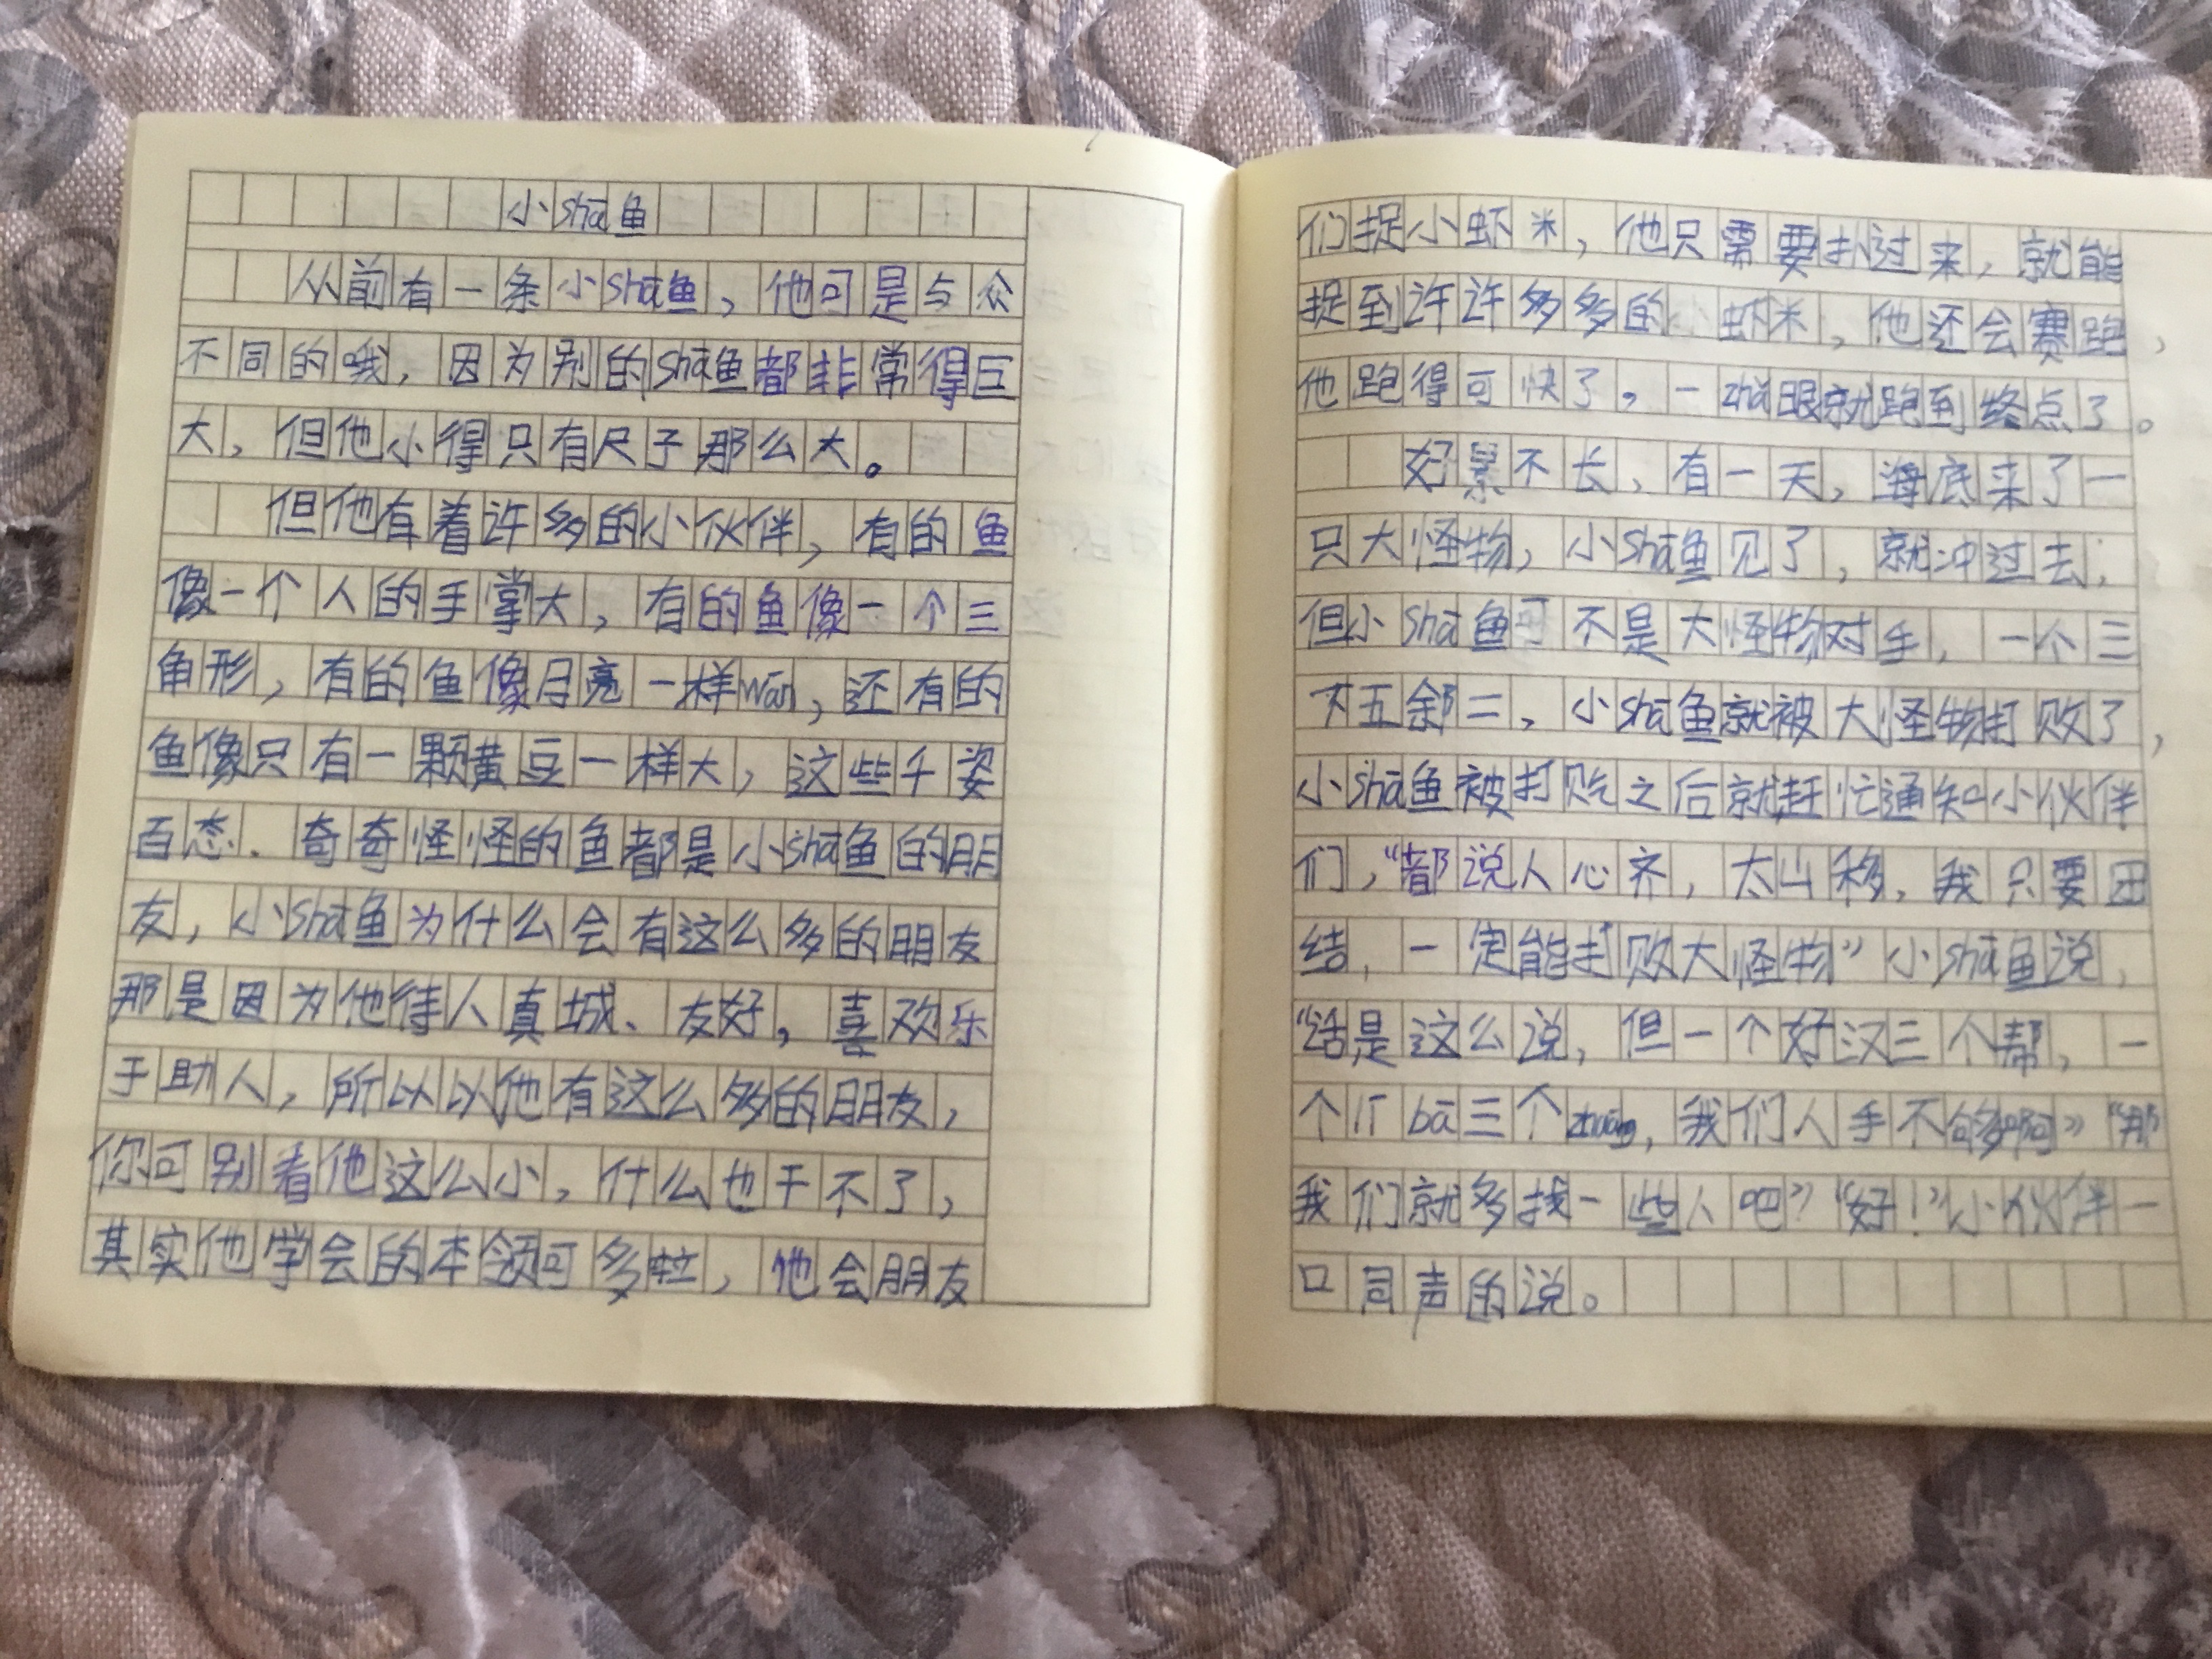 小shā鱼
从前有一条小shā鱼，他可是与众
不同的哦，因为别的shā鱼都非常得巨
大，但他小得只有尺子那么大。
但他有着许多的小伙伴，有的鱼
像一个人的手掌大，有的鱼像一个三
角形，有的鱼像月亮一样wān，还有的
鱼像只有一颗黄豆一样大，这些千姿
百态、奇奇怪怪的鱼都是小shā鱼的朋
友，小shā鱼为什么会有这么多的朋友
那是因为他待人真城、友好，喜欢乐
于助人，所以以他有这么多的朋友，
你可别看他这么小，什么也干不了，
其实他学会的本领可多啦，他会朋友
们捉小虾米，他只需要扑过来，就能
捉到许许多多的小虾米，他还会赛跑，
他跑得可快了，一zhǎ眼就跑到终点了。
好景不长，有一天，海底来了一
只大怪物，小shā鱼见了，就冲过去，
但小shā鱼可不是大怪物对手，一个三
下五余二，小shā鱼就被大怪物打败了，
小shā鱼被打败之后就赶忙通知小伙伴
们，“都说人心齐，太山移，我只要团
结，一定能打败大怪物”小shā鱼说，
“话是这么说，但一个好汉三个帮，一
个lí bā三个zhuāng，我们人手不够啊”“那
我们就多找一些人吧？”“好！”小伙伴一
口同声的说。